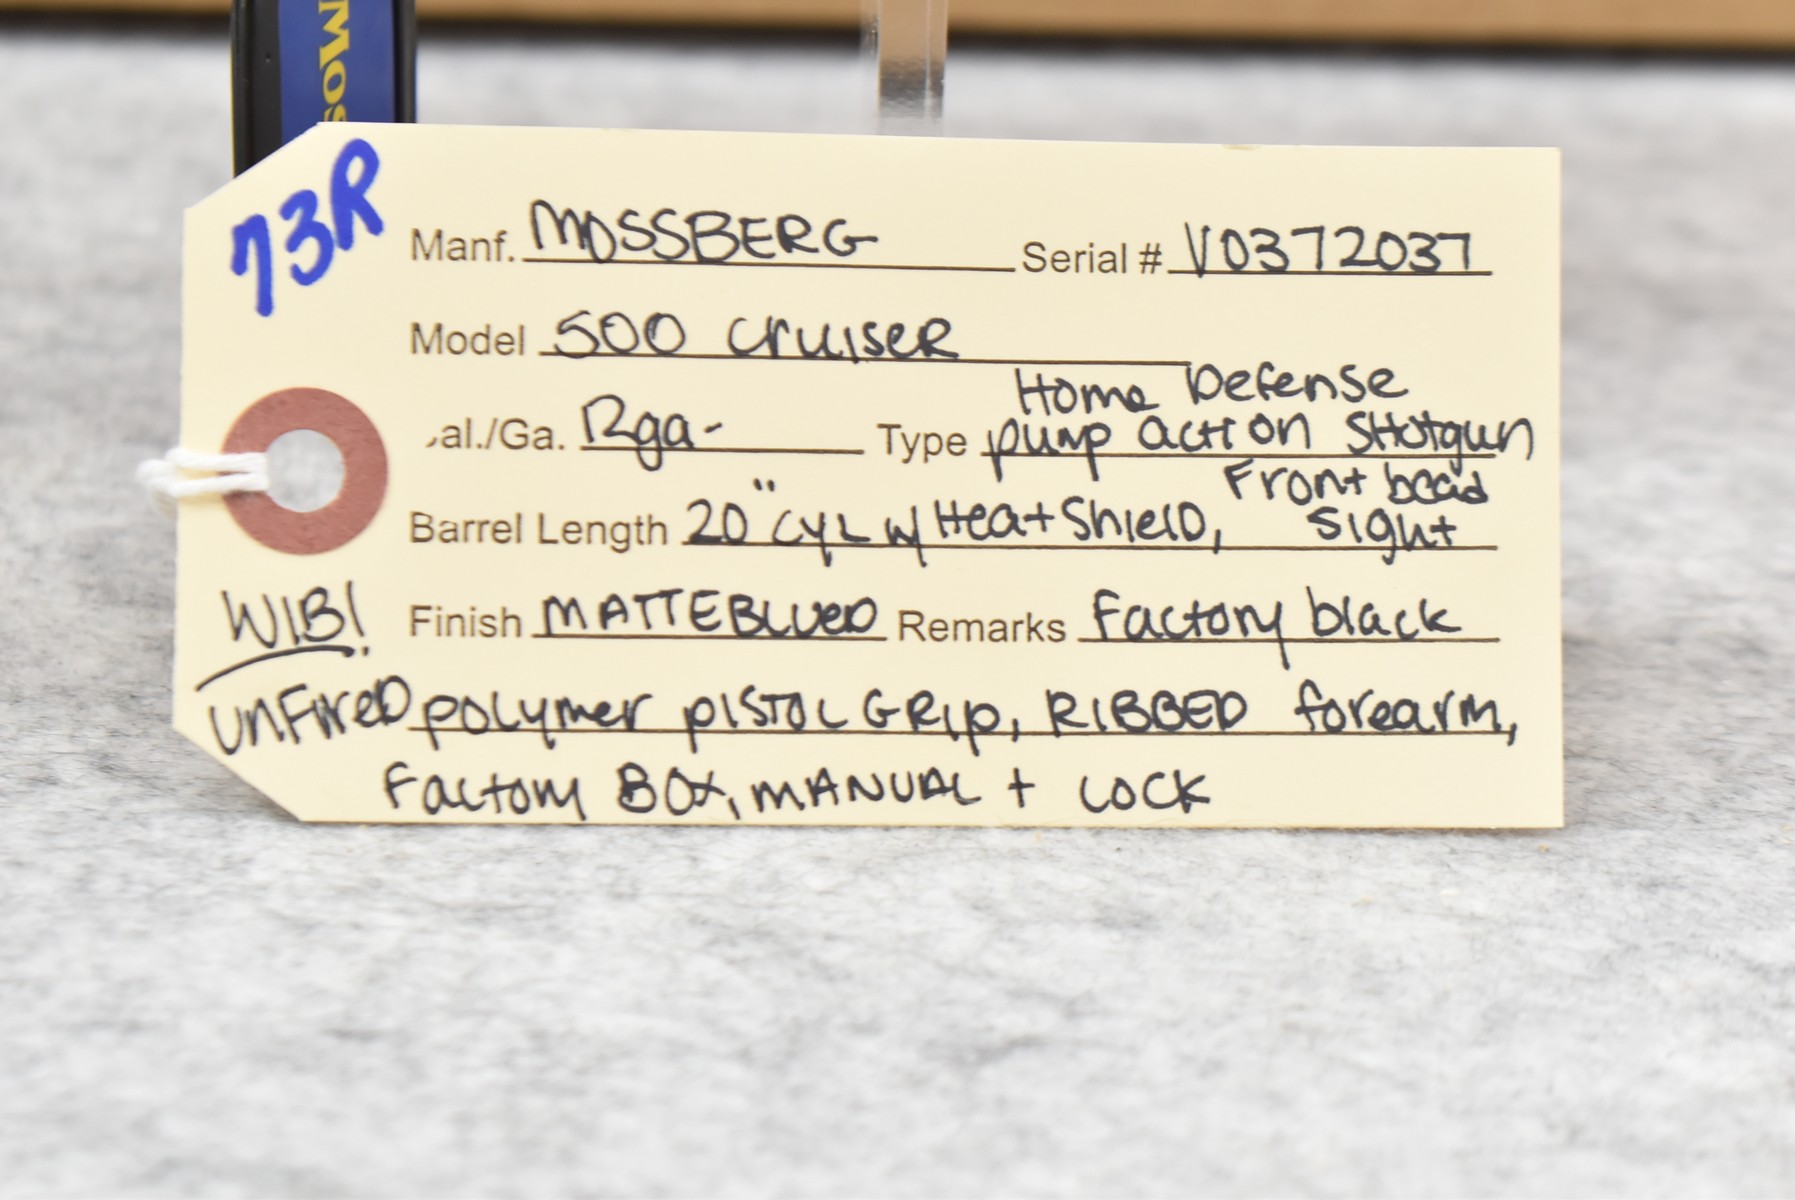 Mos
73R
Manf. MOSSBERG Serial # V0372037
Model 500 Cruiser
al./Ga. 12ga- Type Home Defense
pump action Shotgun
Barrel Length 20" CYL w/ Heat Shield, Front bead
Sight
WIB! Finish MATTE BLUED Remarks Factory black
UNFIRED polymer PISTOL GRIP, RIBBED forearm,
Factory BOX, MANUAL + LOCK